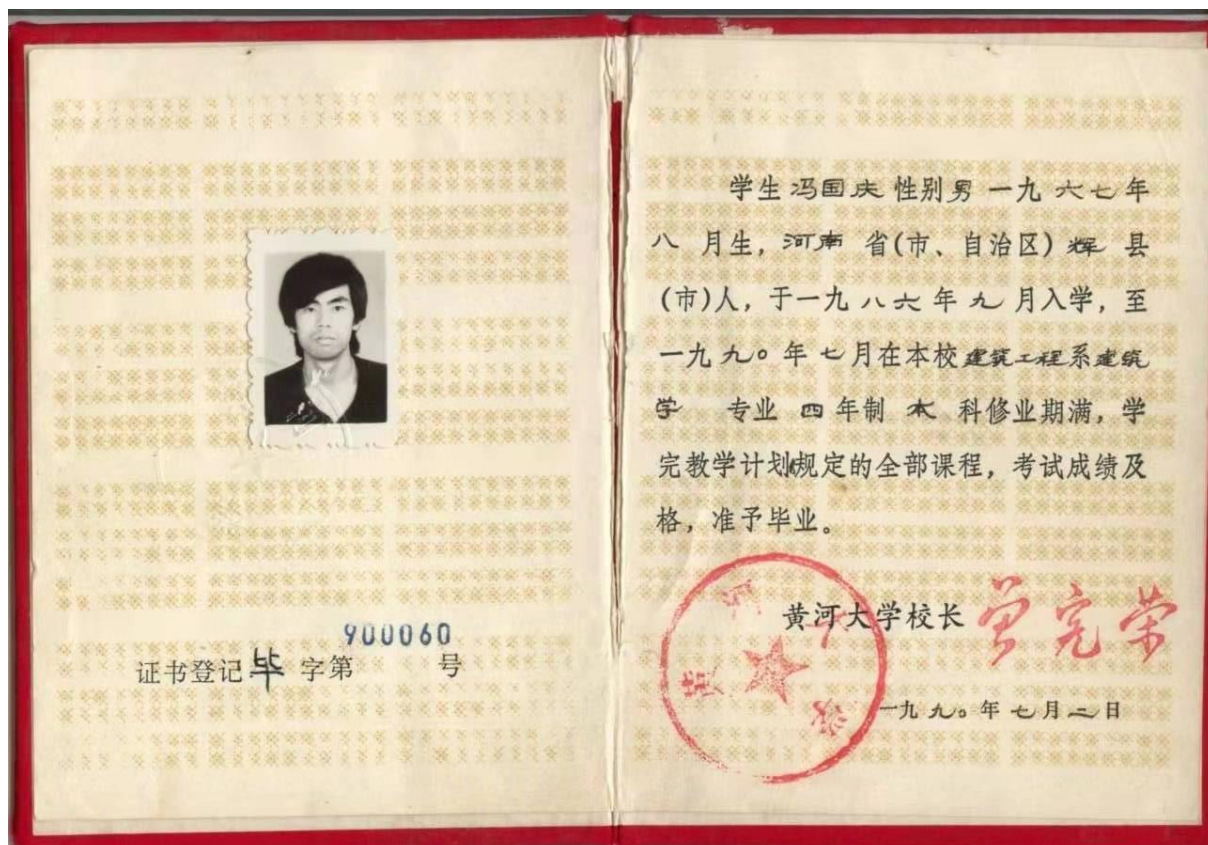 证书登记毕字第900060号
学生冯国庆性别男一九六七年
八月生，河南省(市、自治区)辉县
(市)人，于一九八六年九月入学，至
一九九〇年七月在本校建筑工程系建筑
学专业四年制本科修业期满，学
完教学计划规定的全部课程，考试成绩及
格，准予毕业。
黄河大学校长
黄河大学
一九九〇年七月二日